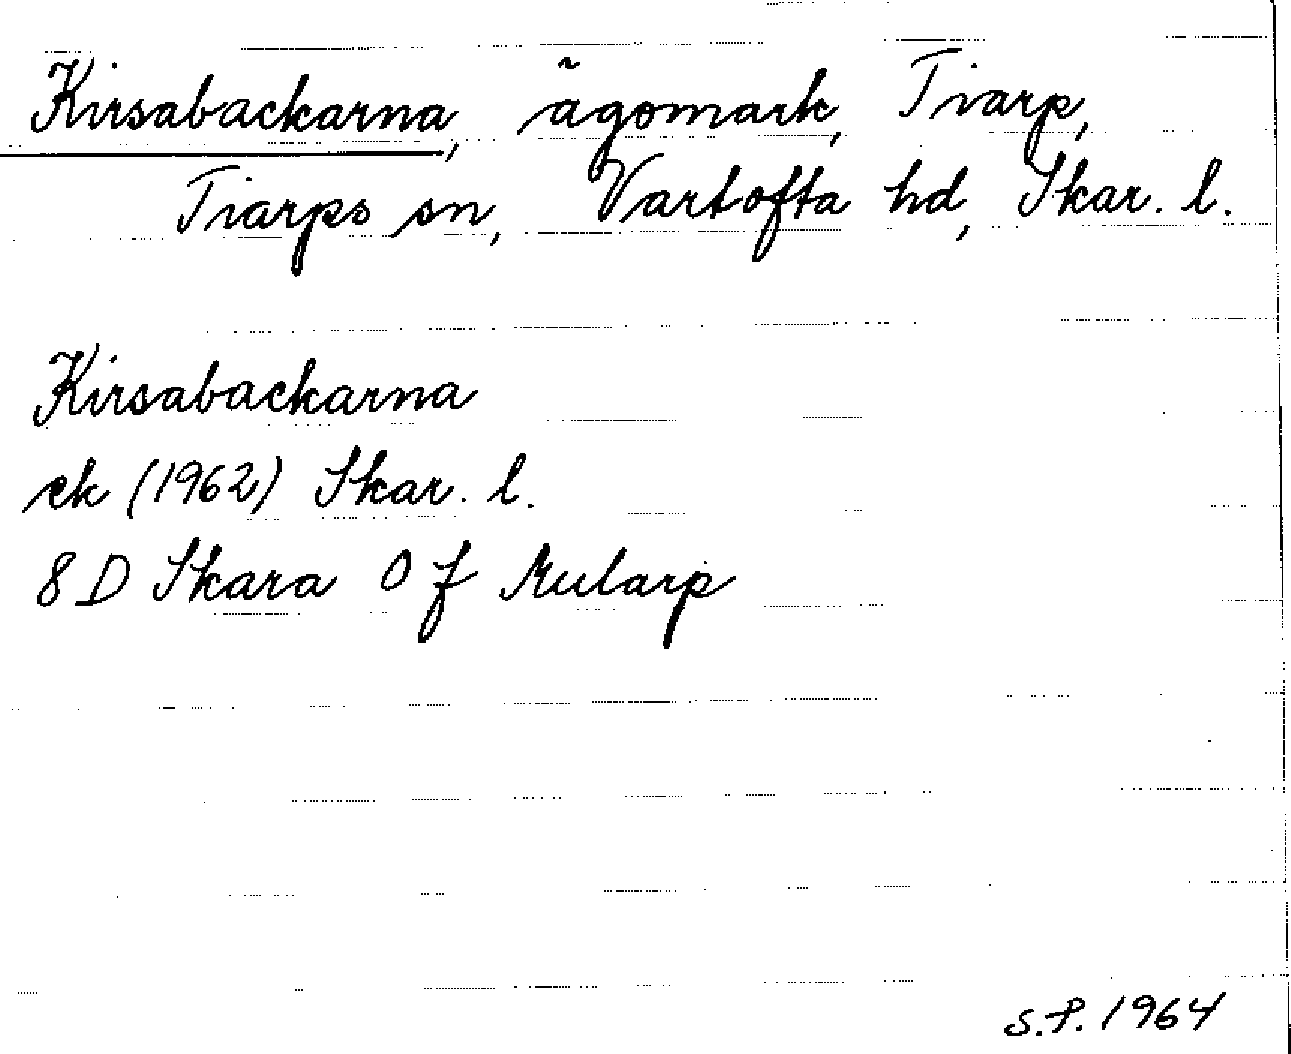 Kirsabackarna, ägomark, Tiarp,
Tiarps sn, Vartofta hd, Skar. l.
Kirsabackarna
ek (1962) Skar. l.
8 D Skara 0 f Mularp
S.P. 1964